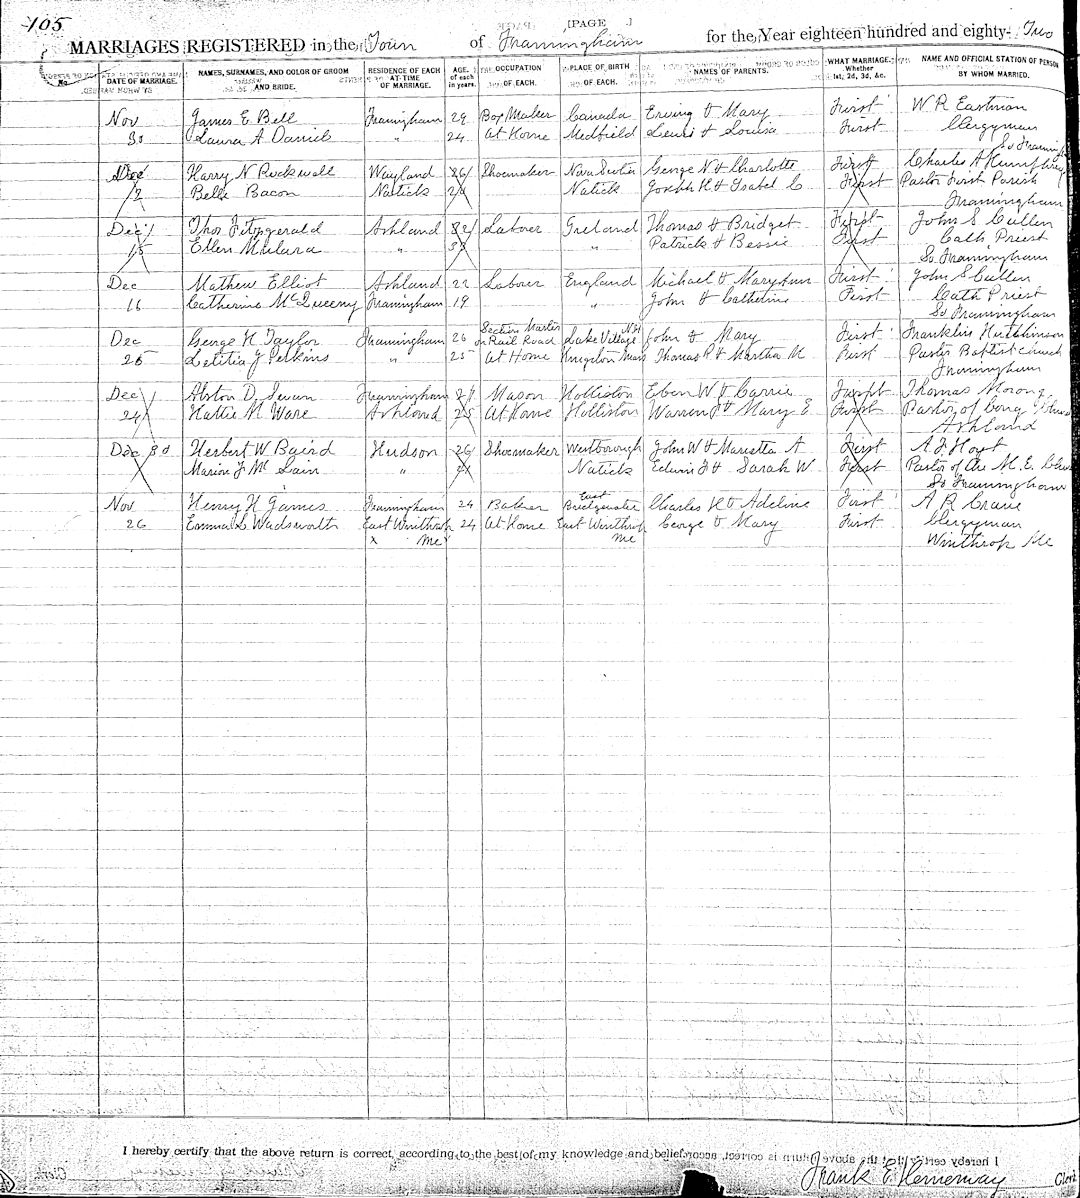 105
[PAGE ]
MARRIAGES REGISTERED in the Town of Framingham for the Year eighteen hundred and eighty-Two
No. DATE OF MARRIAGE. NAMES, SURNAMES, AND COLOR OF GROOM AND BRIDE. RESIDENCE OF EACH AT TIME OF MARRIAGE. AGE of each in years. OCCUPATION OF EACH. PLACE OF BIRTH OF EACH. NAMES OF PARENTS. WHAT MARRIAGE. Whether 1st, 2d, 3d, &c. NAME AND OFFICIAL STATION OF PERSON BY WHOM MARRIED.
Nov James E. Bell Framingham 29 Box Maker Canada Erving & Mary First W R Eastman
30 Laura A Daniels " 24 At Home Medfield Lewis & Louisa First Clergyman
So Framingham
Dec Harry N Rockwell Wayland 26 Shoemaker Nova Scotia George N & Charlotte First Charles A Humphrey
12 Belle Bacon Natick Natick Joseph H & Isabel C First Pastor First Parish
Framingham
Dec Thos Fitzgerald Ashland 32 Laborer Ireland Thomas & Bridget First John S Cullen
15 Ellen " " Patrick & Bessie First Cath Priest
So Framingham
Dec Mathew Elliot Ashland 22 Laborer England Michael & Maryann First John S Cullen
16 Catherine McQueeny Framingham 19 " John & Catherine First Cath Priest
So Framingham
Dec George H Taylor Framingham 26 Section Master on Rail Road Lake Village N.H John & Mary First Franklin Hutchinson
25 Letitia J Perkins " 25 At Home Kingston Mass Thomas P & Martha M First Pastor Baptist Church
Framingham
Dec Alston D. Framingham 27 Mason Holliston Eben W & Carrie First Thomas Morong
24 Hattie M Ware Ashland 25 At Home Holliston Warren J & Mary E First Pastor of Cong Church
Ashland
Dec 30 Herbert W Baird Hudson 26 Shoemaker Westborough John W & Marietta A First A F Hoyt
Marion J Mc Lain " 21 Natick Edwin F & Sarah W First Pastor of the M. E. Chu
So Framingham
Nov Henry H James Framingham 24 Baker East Bridgewater Charles H & Adeline First A R Crane
26 Emma L Wadsworth East Winthrop 24 At Home East Winthrop George & Mary First Clergyman
x Me Me Winthrop Me
I hereby certify that the above return is correct, according to the best of my knowledge and belief.
Frank E Hemenway Clerk